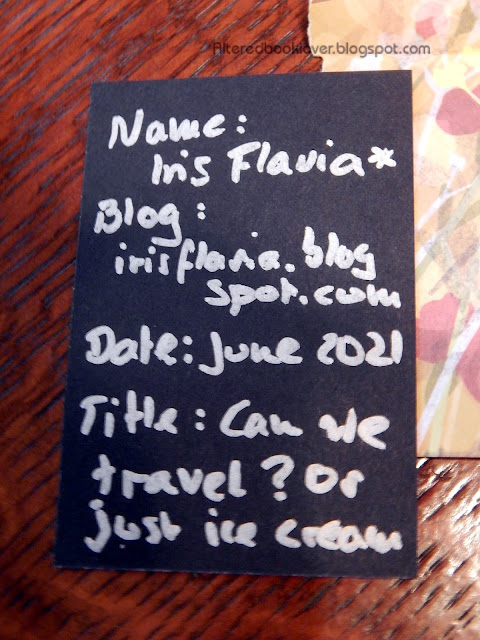 Alteredbooklover.blogspot.com
Name:
Iris Flavia*
Blog:
irisflavia.blog
spot.com
Date: June 2021
Title: Can we
travel? Or
just ice cream